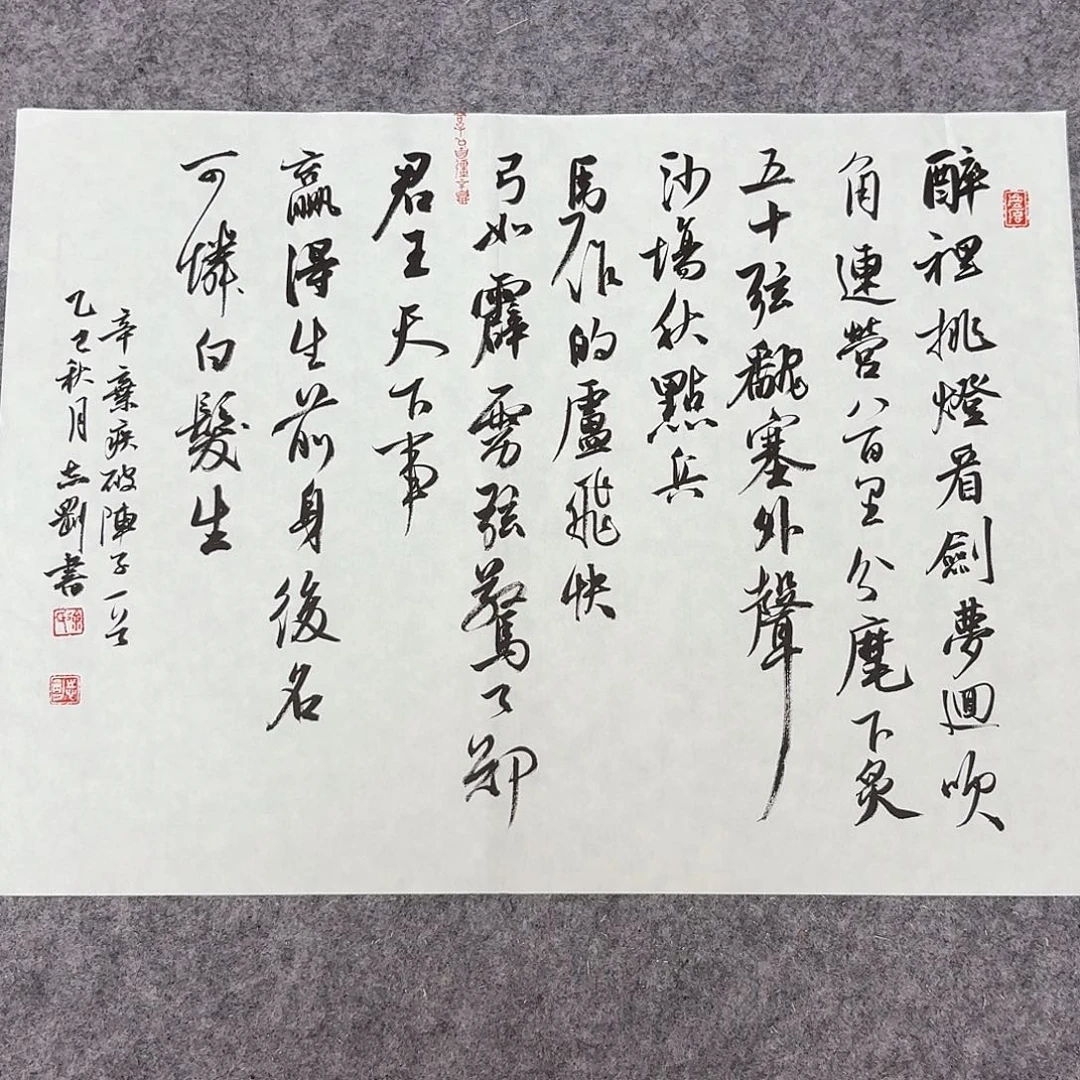 醉裡挑燈看劍夢迴吹
角連營八百里分麾下炙
五十弦翻塞外聲
沙場秋點兵
馬作的盧飛快
弓如霹雳弦驚了卻
君王天下事
贏得生前身後名
可憐白髮生
辛棄疾破陣子一首
乙巳秋月志剛書